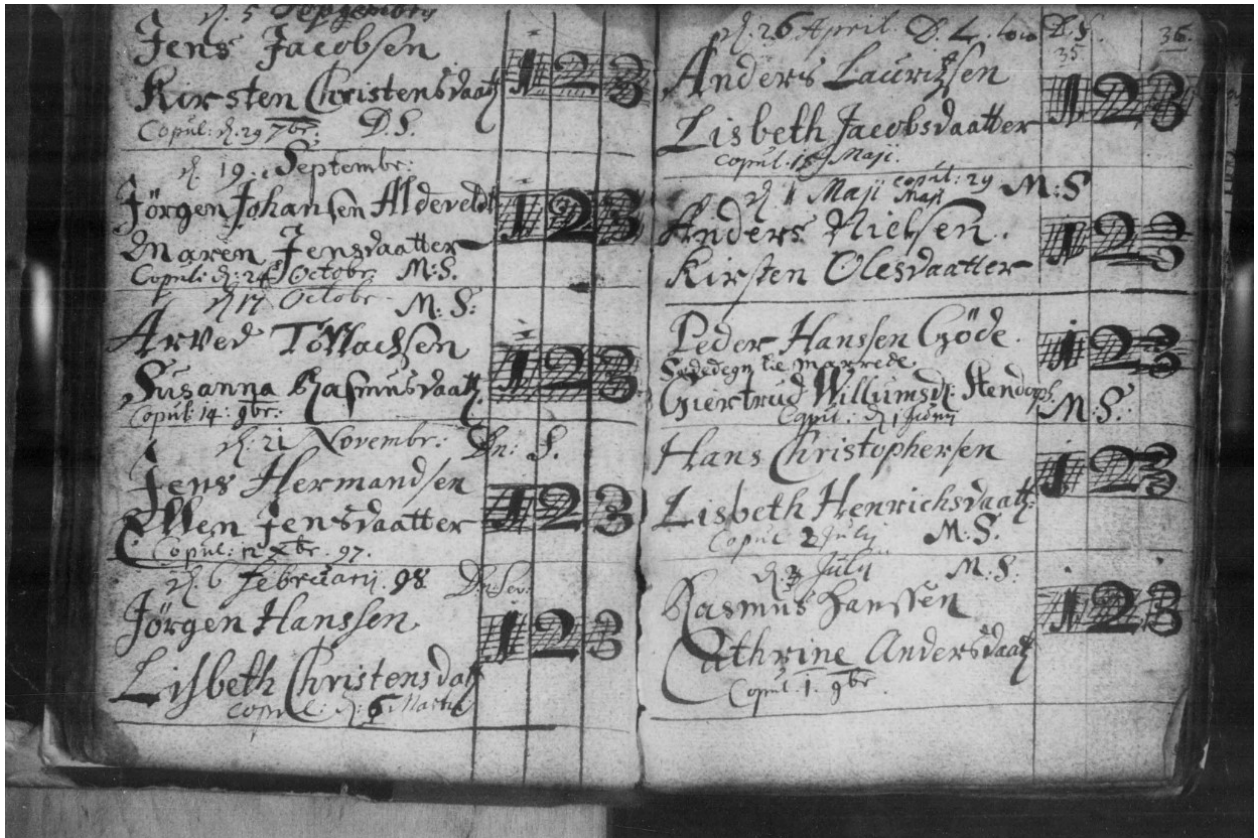 d. 5 Septembris
Jens Jacobsen
Kirsten Christensdaatt
1 2 3
Copul: d. 29 7br. D.S.
d. 19. Septembr:
Jörgen Johansen Alderveldt
Maren Jensdaatter
1 2 3
Copul: d: 24 Octobr. M:S.
d. 17 Octobr M:S:
Arved
Susanna Rasmusdaatt.
1 2 3
Copul: 14. 9br:
d. 21 Novembr: Dn: S.
Jens Hermandsen
Ellen Jensdaatter
1 2 3
Copul: 12 Xbr. 97.
d. 6 Februarij. 98
Jörgen Hanssen
Lisbeth Christensdatt
1 2 3
Copul: d: 6 Martii
d. 26 April. D. 4. D.S.
35
36.
Anders Lauritzsen
Lisbeth Jacobsdaatter
1 2 3
Copul. Maji.
d. 1 Maji Copul: 29 Maji M:S
Anders Nielsen.
Kirsten Olesdaatter
1 2 3
Peder Hanssen Göde.
Giertrud Willumsd:
1 2 3
Copul. d. 1 Junij M:S:
Hans Christophersen
Lisbeth Henrichsdaatt:
1 2 3
Copul. 2 Julij M:S.
d. 3 Julij M:S:
Rasmus Hanssen
Cathrine Andersdaatt
1 2 3
Copul. 1. 9br.